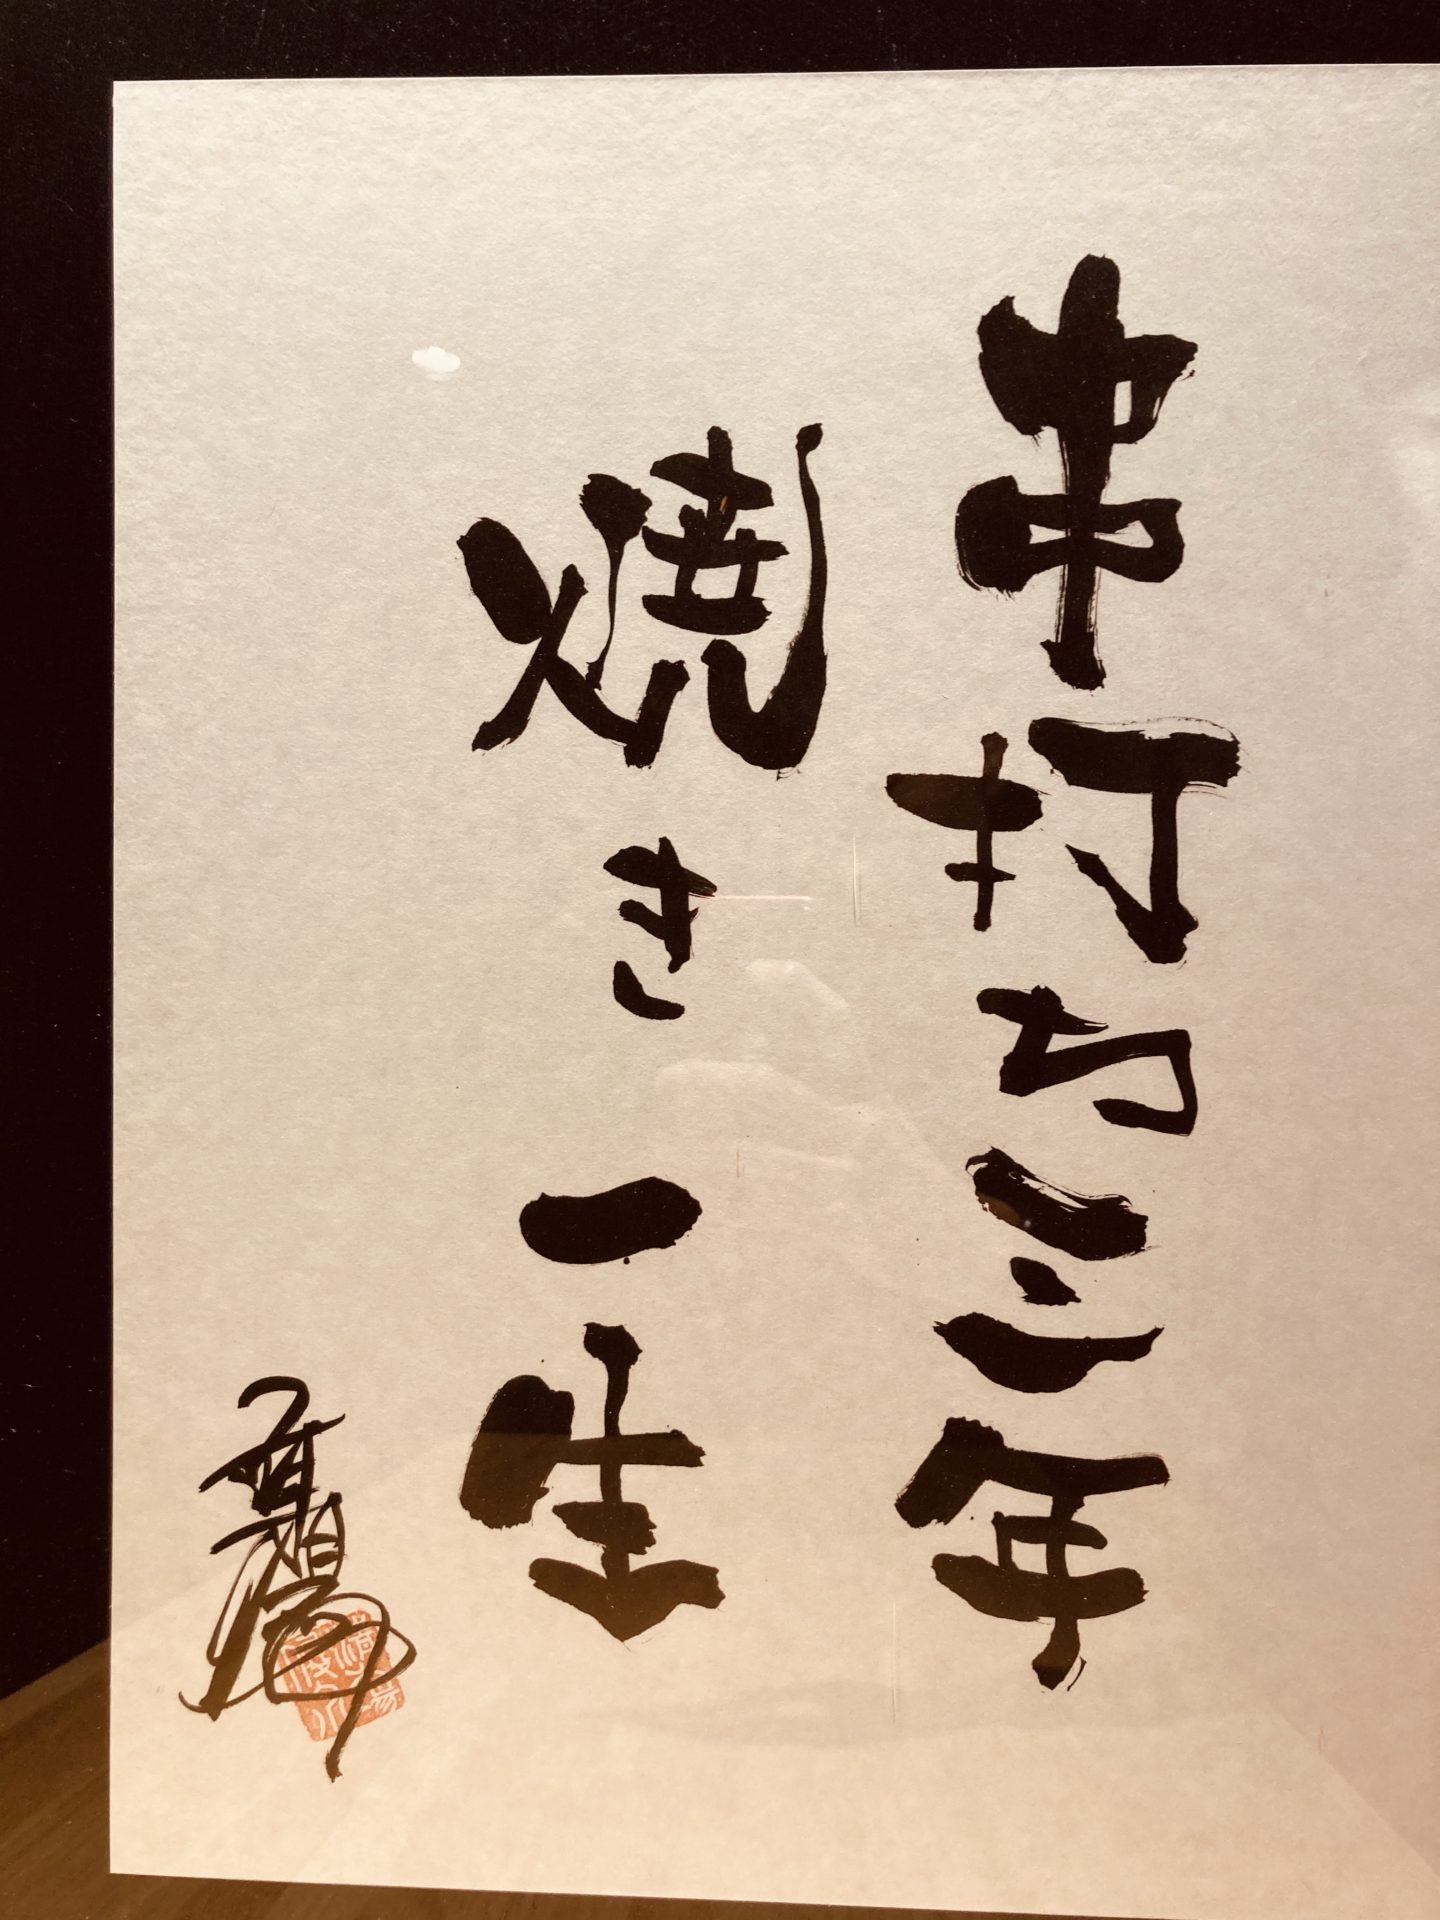 串打ち三年
焼き一生